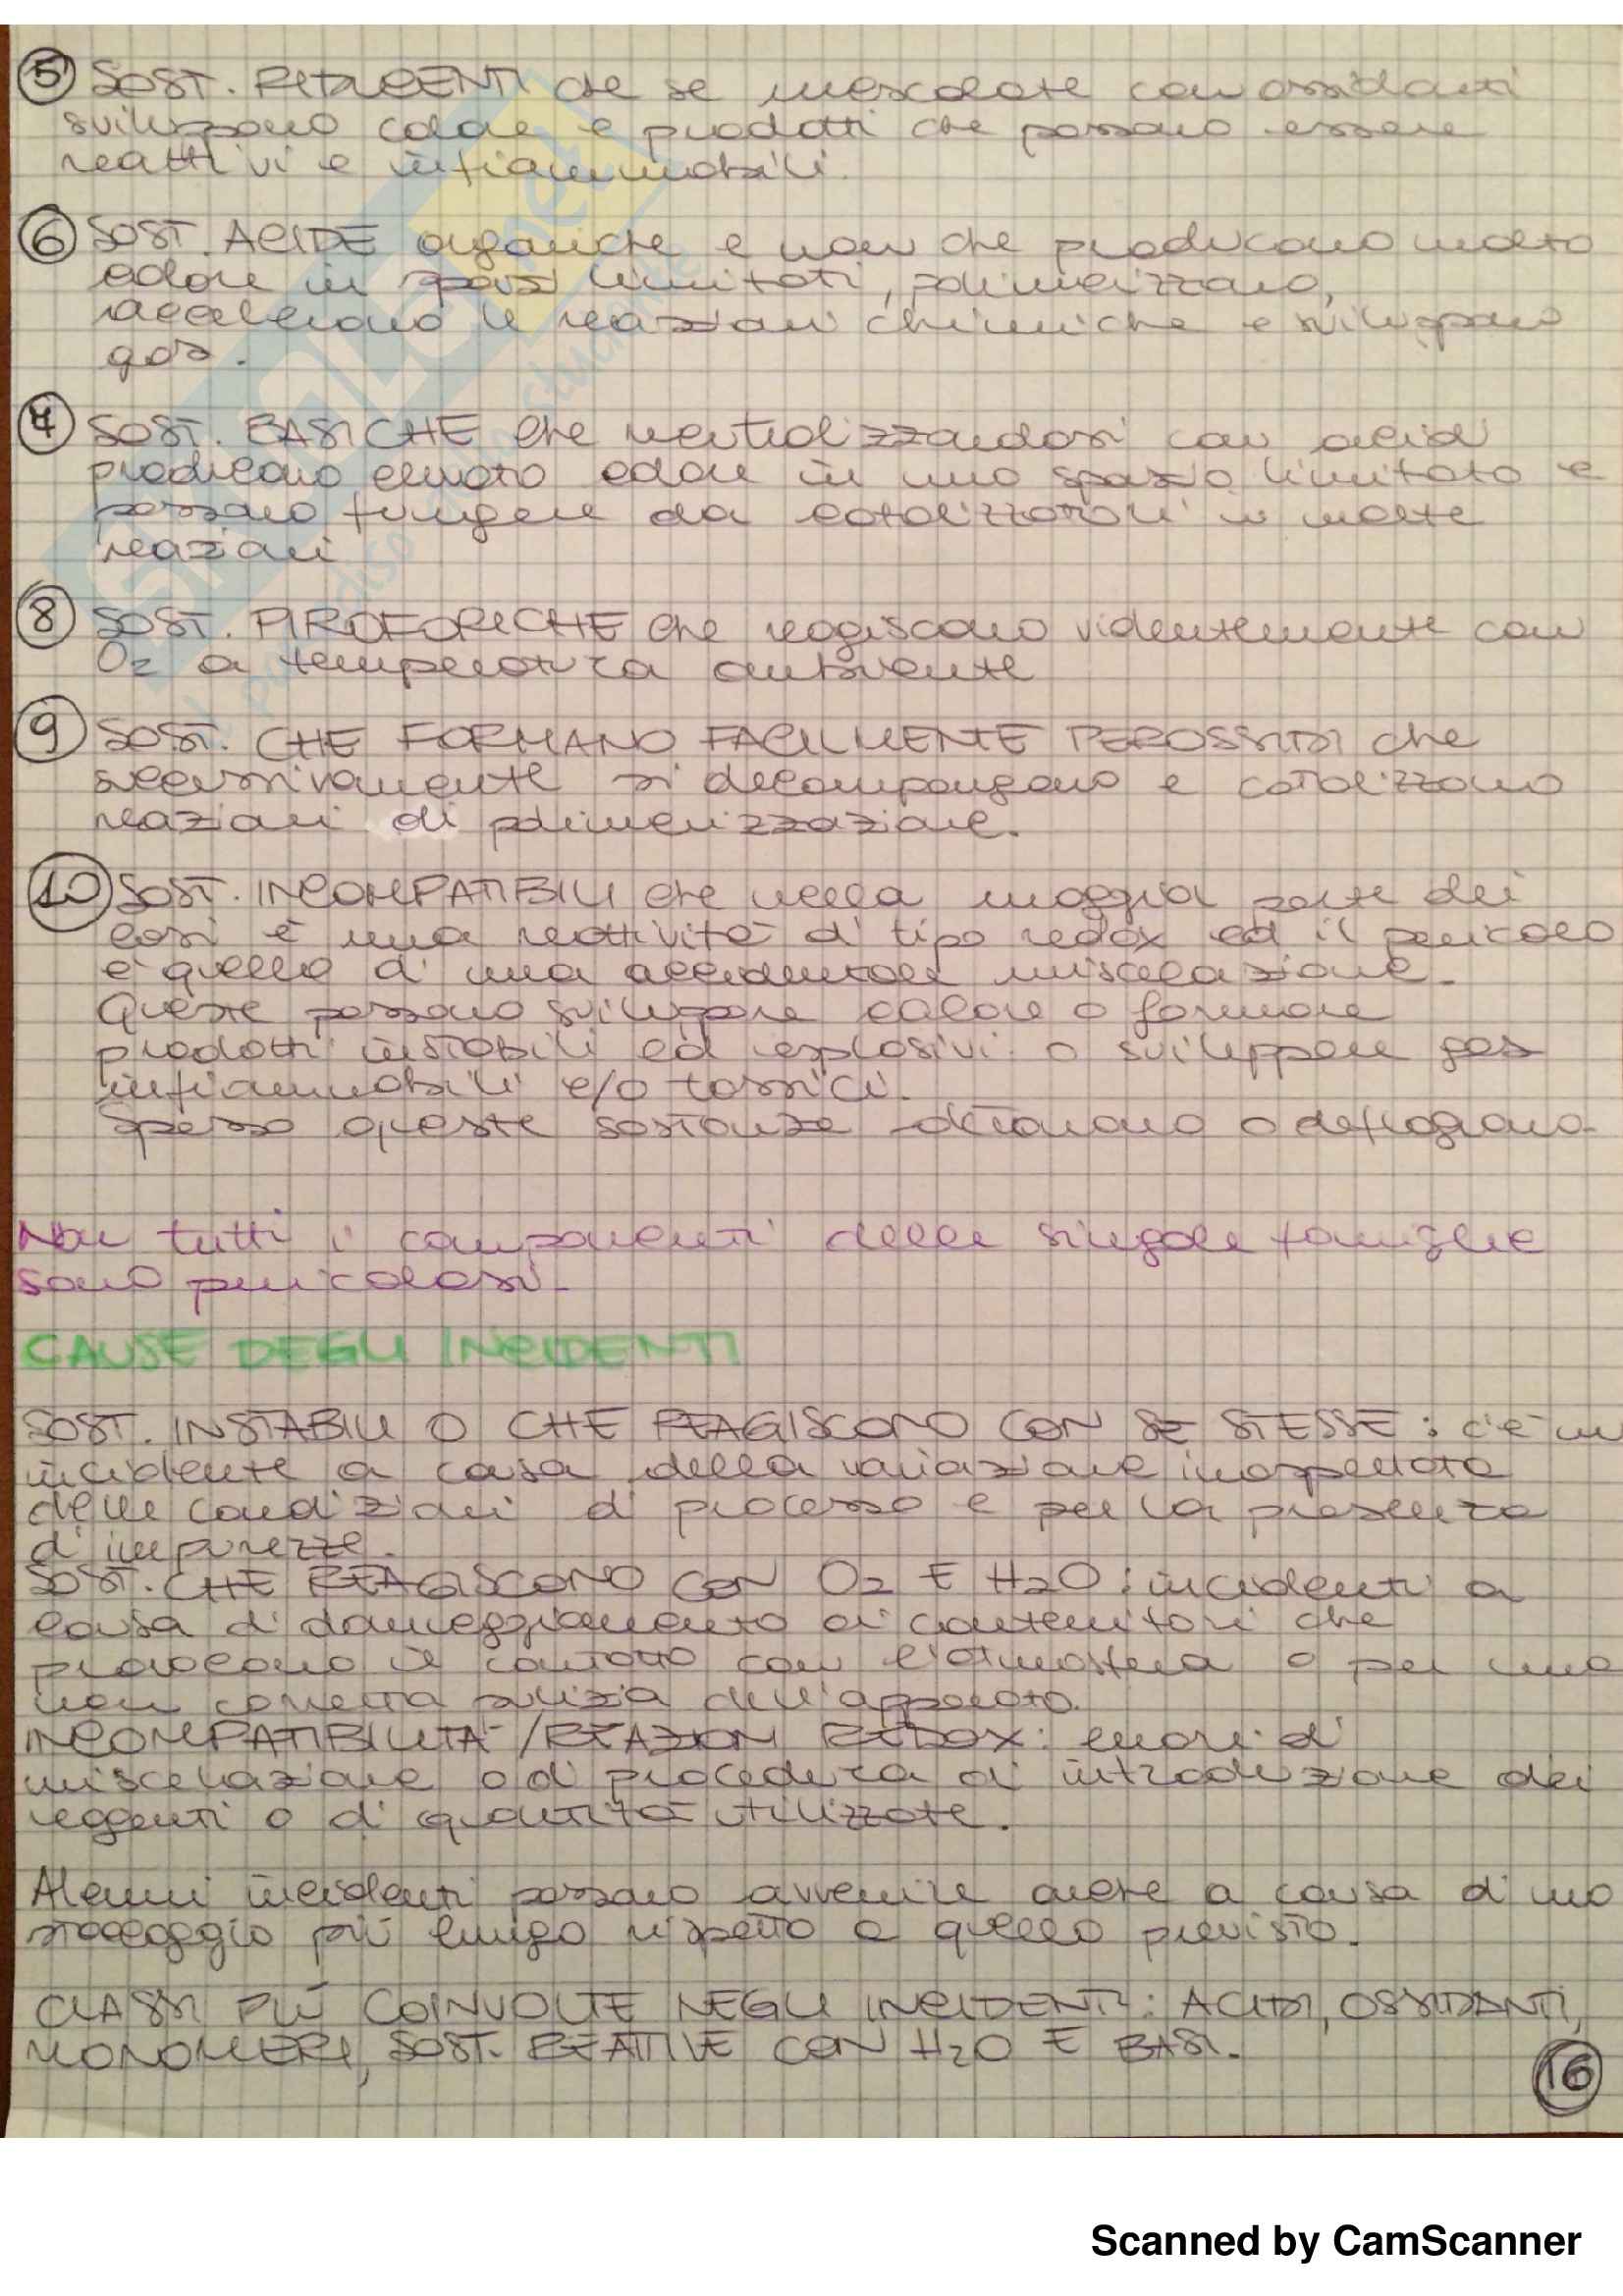 5 SOST. RIDUCENTI che se mescolate con ossidanti
sviluppano calore e prodotti che possono essere
reattivi e infiammabili.
6 SOST. ACIDE organiche e non che producono molto
calore in spazi limitati, polimerizzano,
accelerano le reazioni chimiche e sviluppano
gas.
7 SOST. BASICHE che neutralizzandosi con acidi
producono elevato calore in uno spazio limitato e
possono fungere da catalizzatori in molte
reazioni
8 SOST. PIROFORICHE che reagiscono violentemente con
O₂ a temperatura ambiente
9 SOST. CHE FORMANO FACILMENTE PEROSSIDI che
successivamente si decompongono e catalizzano
reazioni di polimerizzazione.
10 SOST. INCOMPATIBILI che nella maggior parte dei
casi è una reattività di tipo redox ed il pericolo
è quello di una accidentale miscelazione.
Queste possono sviluppare calore o formare
prodotti instabili ed esplosivi o sviluppare gas
infiammabili e/o tossici.
Spesso queste sostanze detonano o deflagrano.
Non tutti i componenti delle singole famiglie
sono pericolosi.
CAUSE DEGLI INCIDENTI
SOST. INSTABILI O CHE REAGISCONO CON SE STESSE: c'è un
incidente a causa della variazione inaspettata
delle condizioni di processo e per la presenza
di impurezze.
SOST. CHE REAGISCONO CON O₂ E H₂O: incidenti a
causa di danneggiamento di contenitori che
provocano il contatto con l'atmosfera o per una
non corretta pulizia dell'apparato.
INCOMPATIBILITÀ/REAZIONI REDOX: errori di
miscelazione o di procedura di introduzione dei
reagenti o di quantità utilizzate.
Alcuni incidenti possono avvenire anche a causa di uno
stoccaggio più lungo rispetto a quello previsto.
CLASSI PIÙ COINVOLTE NEGLI INCIDENTI: ACIDI, OSSIDANTI,
MONOMERI, SOST. REATTIVE CON H₂O E BASI.
16
Scanned by CamScanner